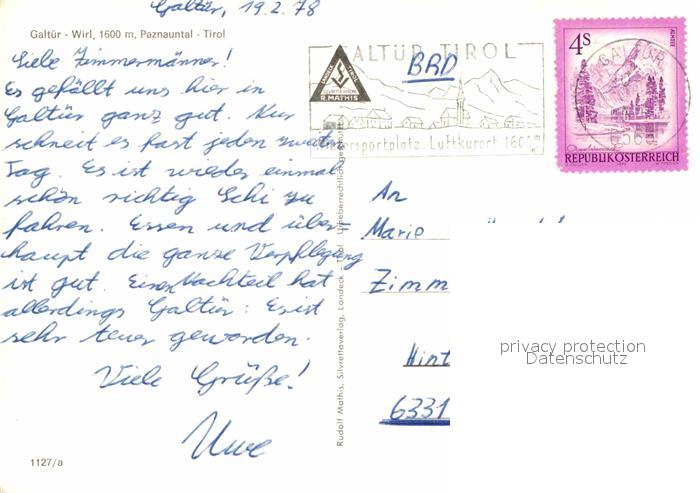 Galtür, 19.2.78
Galtür - Wirl, 1600 m, Paznauntal - Tirol
Liebe Zimmermänner!
Es gefällt uns hier in
Galtür ganz gut. Nur
schneit es fast jeden zweiten
Tag. Es ist wieder einmal
schön richtig Schi zu
fahren. Essen und über-
haupt die ganze Verpflegung
ist gut. Einen Nachteil hat
allerdings Galtür: Es ist
sehr teuer geworden.
Viele Grüße!
Uwe
1127/a
Rudolf Mathis, Silvrettaverlag, Landeck - Tirol. Urheberrechtlich
R. MATHIS
ALTÜR TIROL
BRD
Wintersportplatz Luftkurort 1600m
4S
ALMSEE
REPUBLIK ÖSTERREICH
An
Marie
Zimm
Hint
6331
privacy protection
Datenschutz